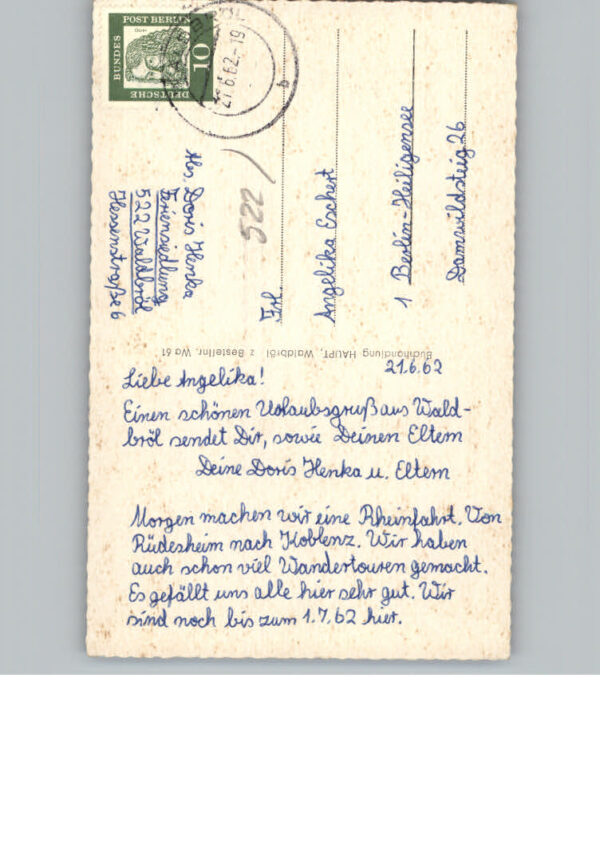 DEUTSCHE
BUNDES
POST BERLIN
10
21.6.62.-19
b
522
Abs. Doris Henka
Feriensiedlung
522 Waldbröl
Hessenstraße 6
Frl.
Angelika Eschert
1 Berlin-Heiligensee
Damwildsteig 26
Buchhandlung HAUPT, Waldbröl z Bestellnr. Wa 61
21.6.62
Liebe Angelika!
Einen schönen Urlaubsgruß aus Wald-
bröl sendet Dir, sowie Deinen Eltern
Deine Doris Henka u. Eltern
Morgen machen wir eine Rheinfahrt. Von
Rüdesheim nach Koblenz. Wir haben
auch schon viel Wandertouren gemacht.
Es gefällt uns alle hier sehr gut. Wir
sind noch bis zum 1.7.62 hier.